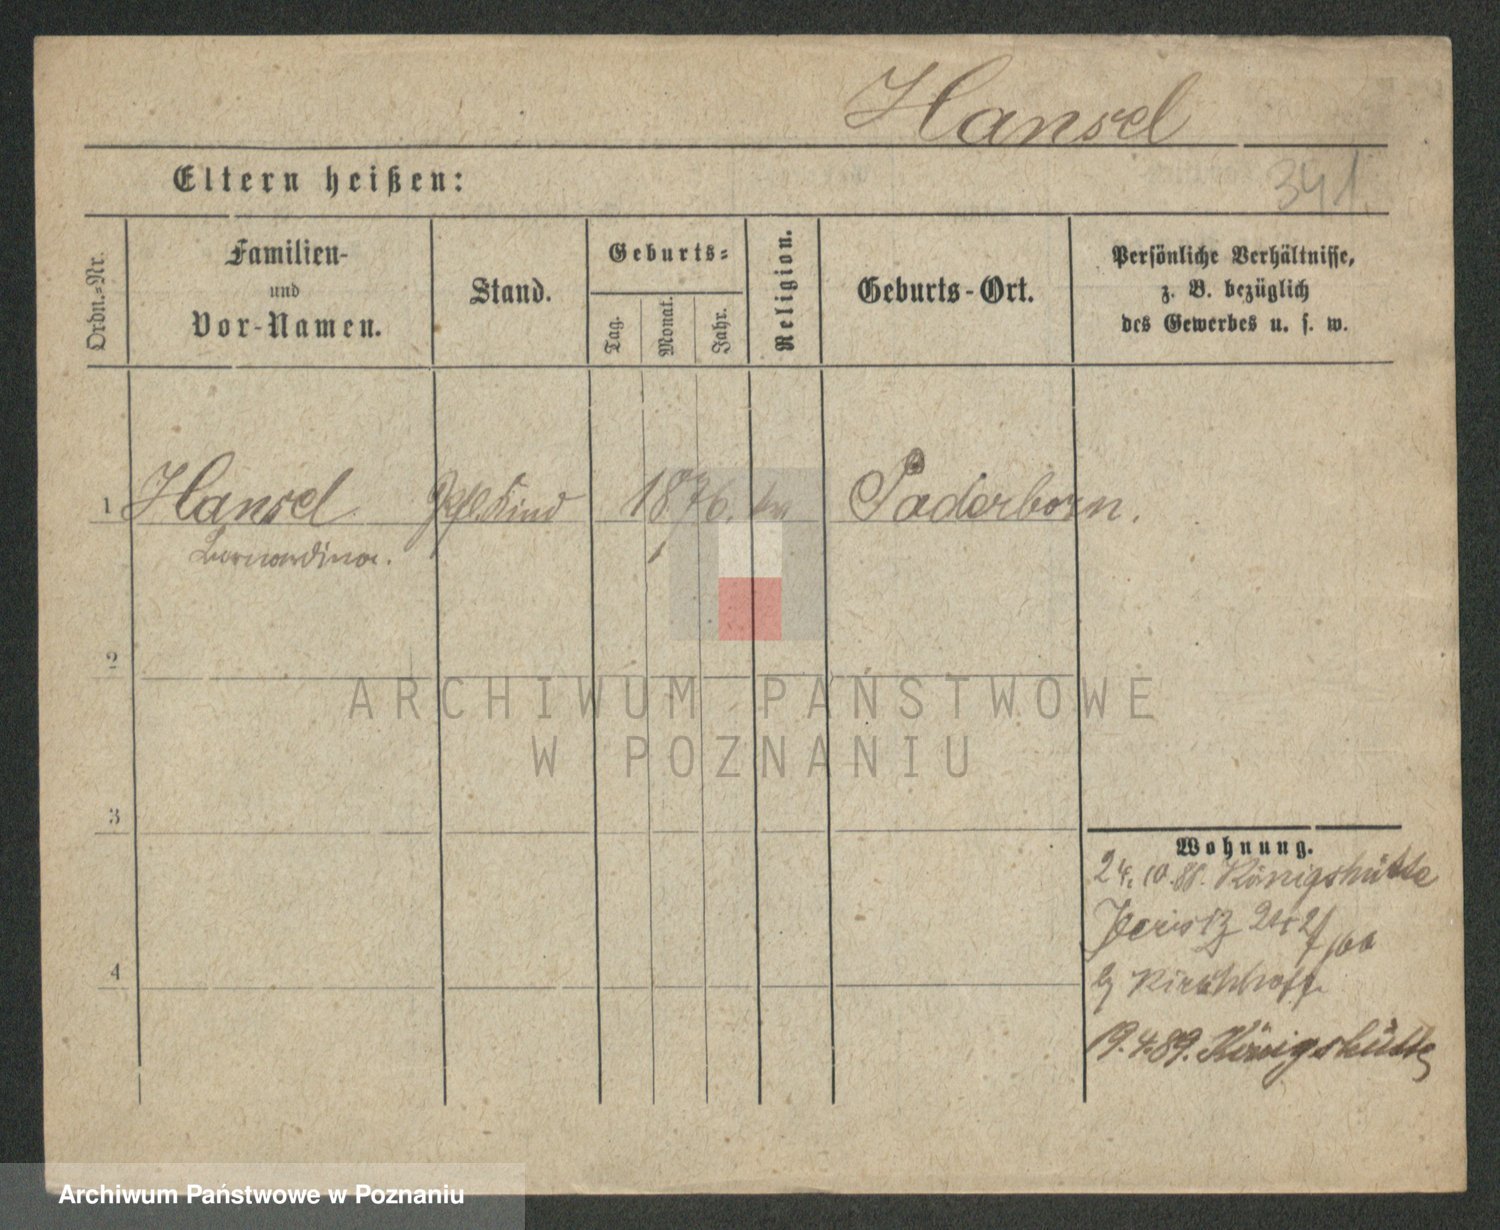 Hansel
341.
Eltern heißen:
Ordn.-Nr.
Familien-
und
Vor-Namen.
Stand.
Geburts-
Tag.
Monat.
Jahr.
Religion.
Geburts-Ort.
Persönliche Verhältnisse,
z. B. bezüglich
des Gewerbes u. s. w.
1 Hansel Pfl. Kind 1876. Paderborn.
Bernardina.
2
ARCHIWUM PAŃSTWOWE
W POZNANIU
3
Wohnung.
24.10.88. Königshütte
Jersitz
4
b/ Kirchhoff
19.4.89. Königshütte
Archiwum Państwowe w Poznaniu